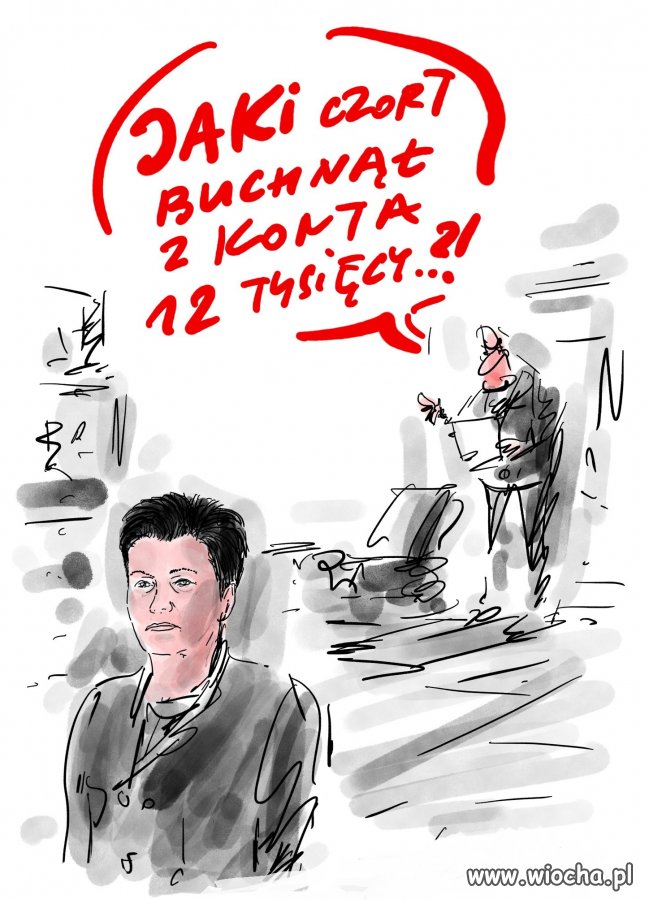 JAKI CZORT
BUCHNĄŁ
Z KONTA
12 TYSIĘCY...?!
www.wiocha.pl